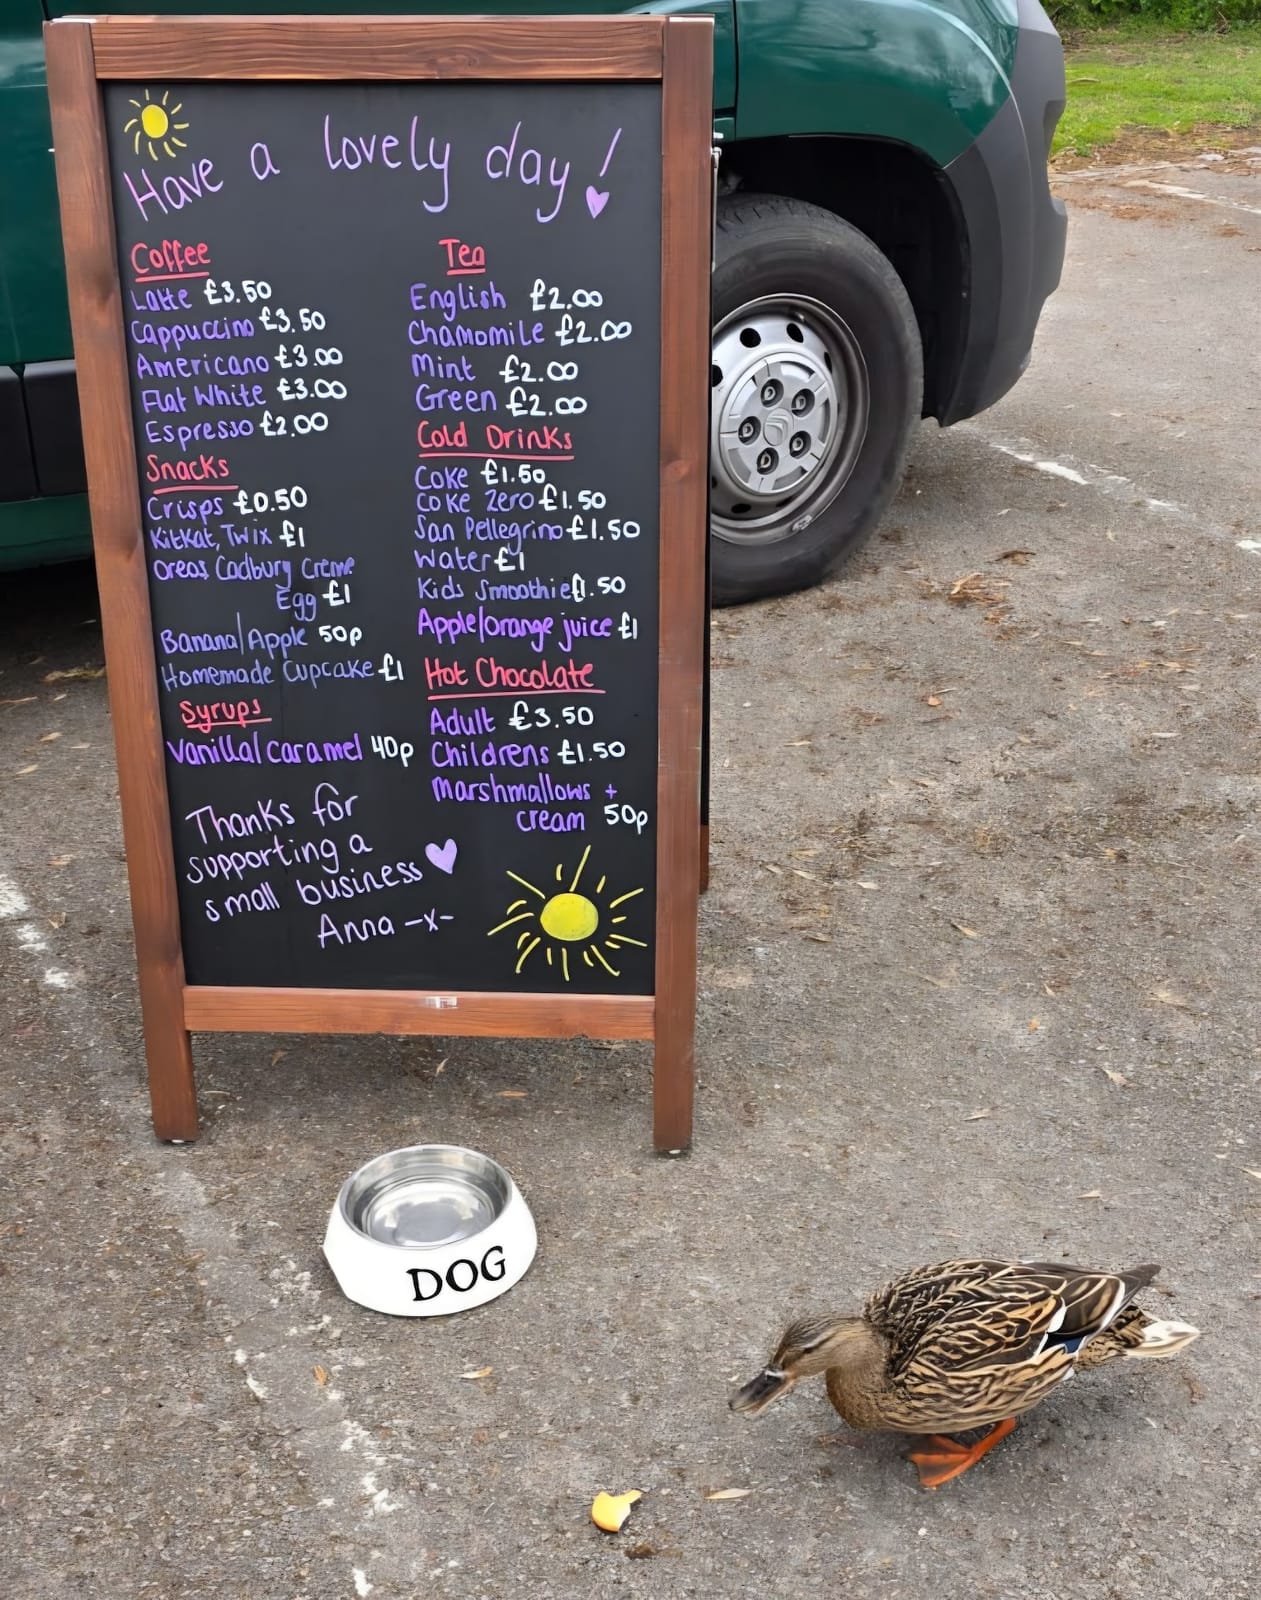 Have a lovely day!
Coffee
Latte £3.50
Cappuccino £3.50
Americano £3.00
Flat White £3.00
Espresso £2.00
Snacks
Crisps £0.50
KitKat, Twix £1
Oreos Cadbury Creme
Egg £1
Banana/Apple 50p
Homemade Cupcake £1
Syrups
Vanilla/caramel 40p
Thanks for
supporting a
small business
Anna -x-
Tea
English £2.00
Chamomile £2.00
Mint £2.00
Green £2.00
Cold Drinks
Coke £1.50
Coke Zero £1.50
San Pellegrino £1.50
Water £1
Kids Smoothie £1.50
Apple/orange juice £1
Hot Chocolate
Adult £3.50
Childrens £1.50
Marshmallows +
cream 50p
DOG